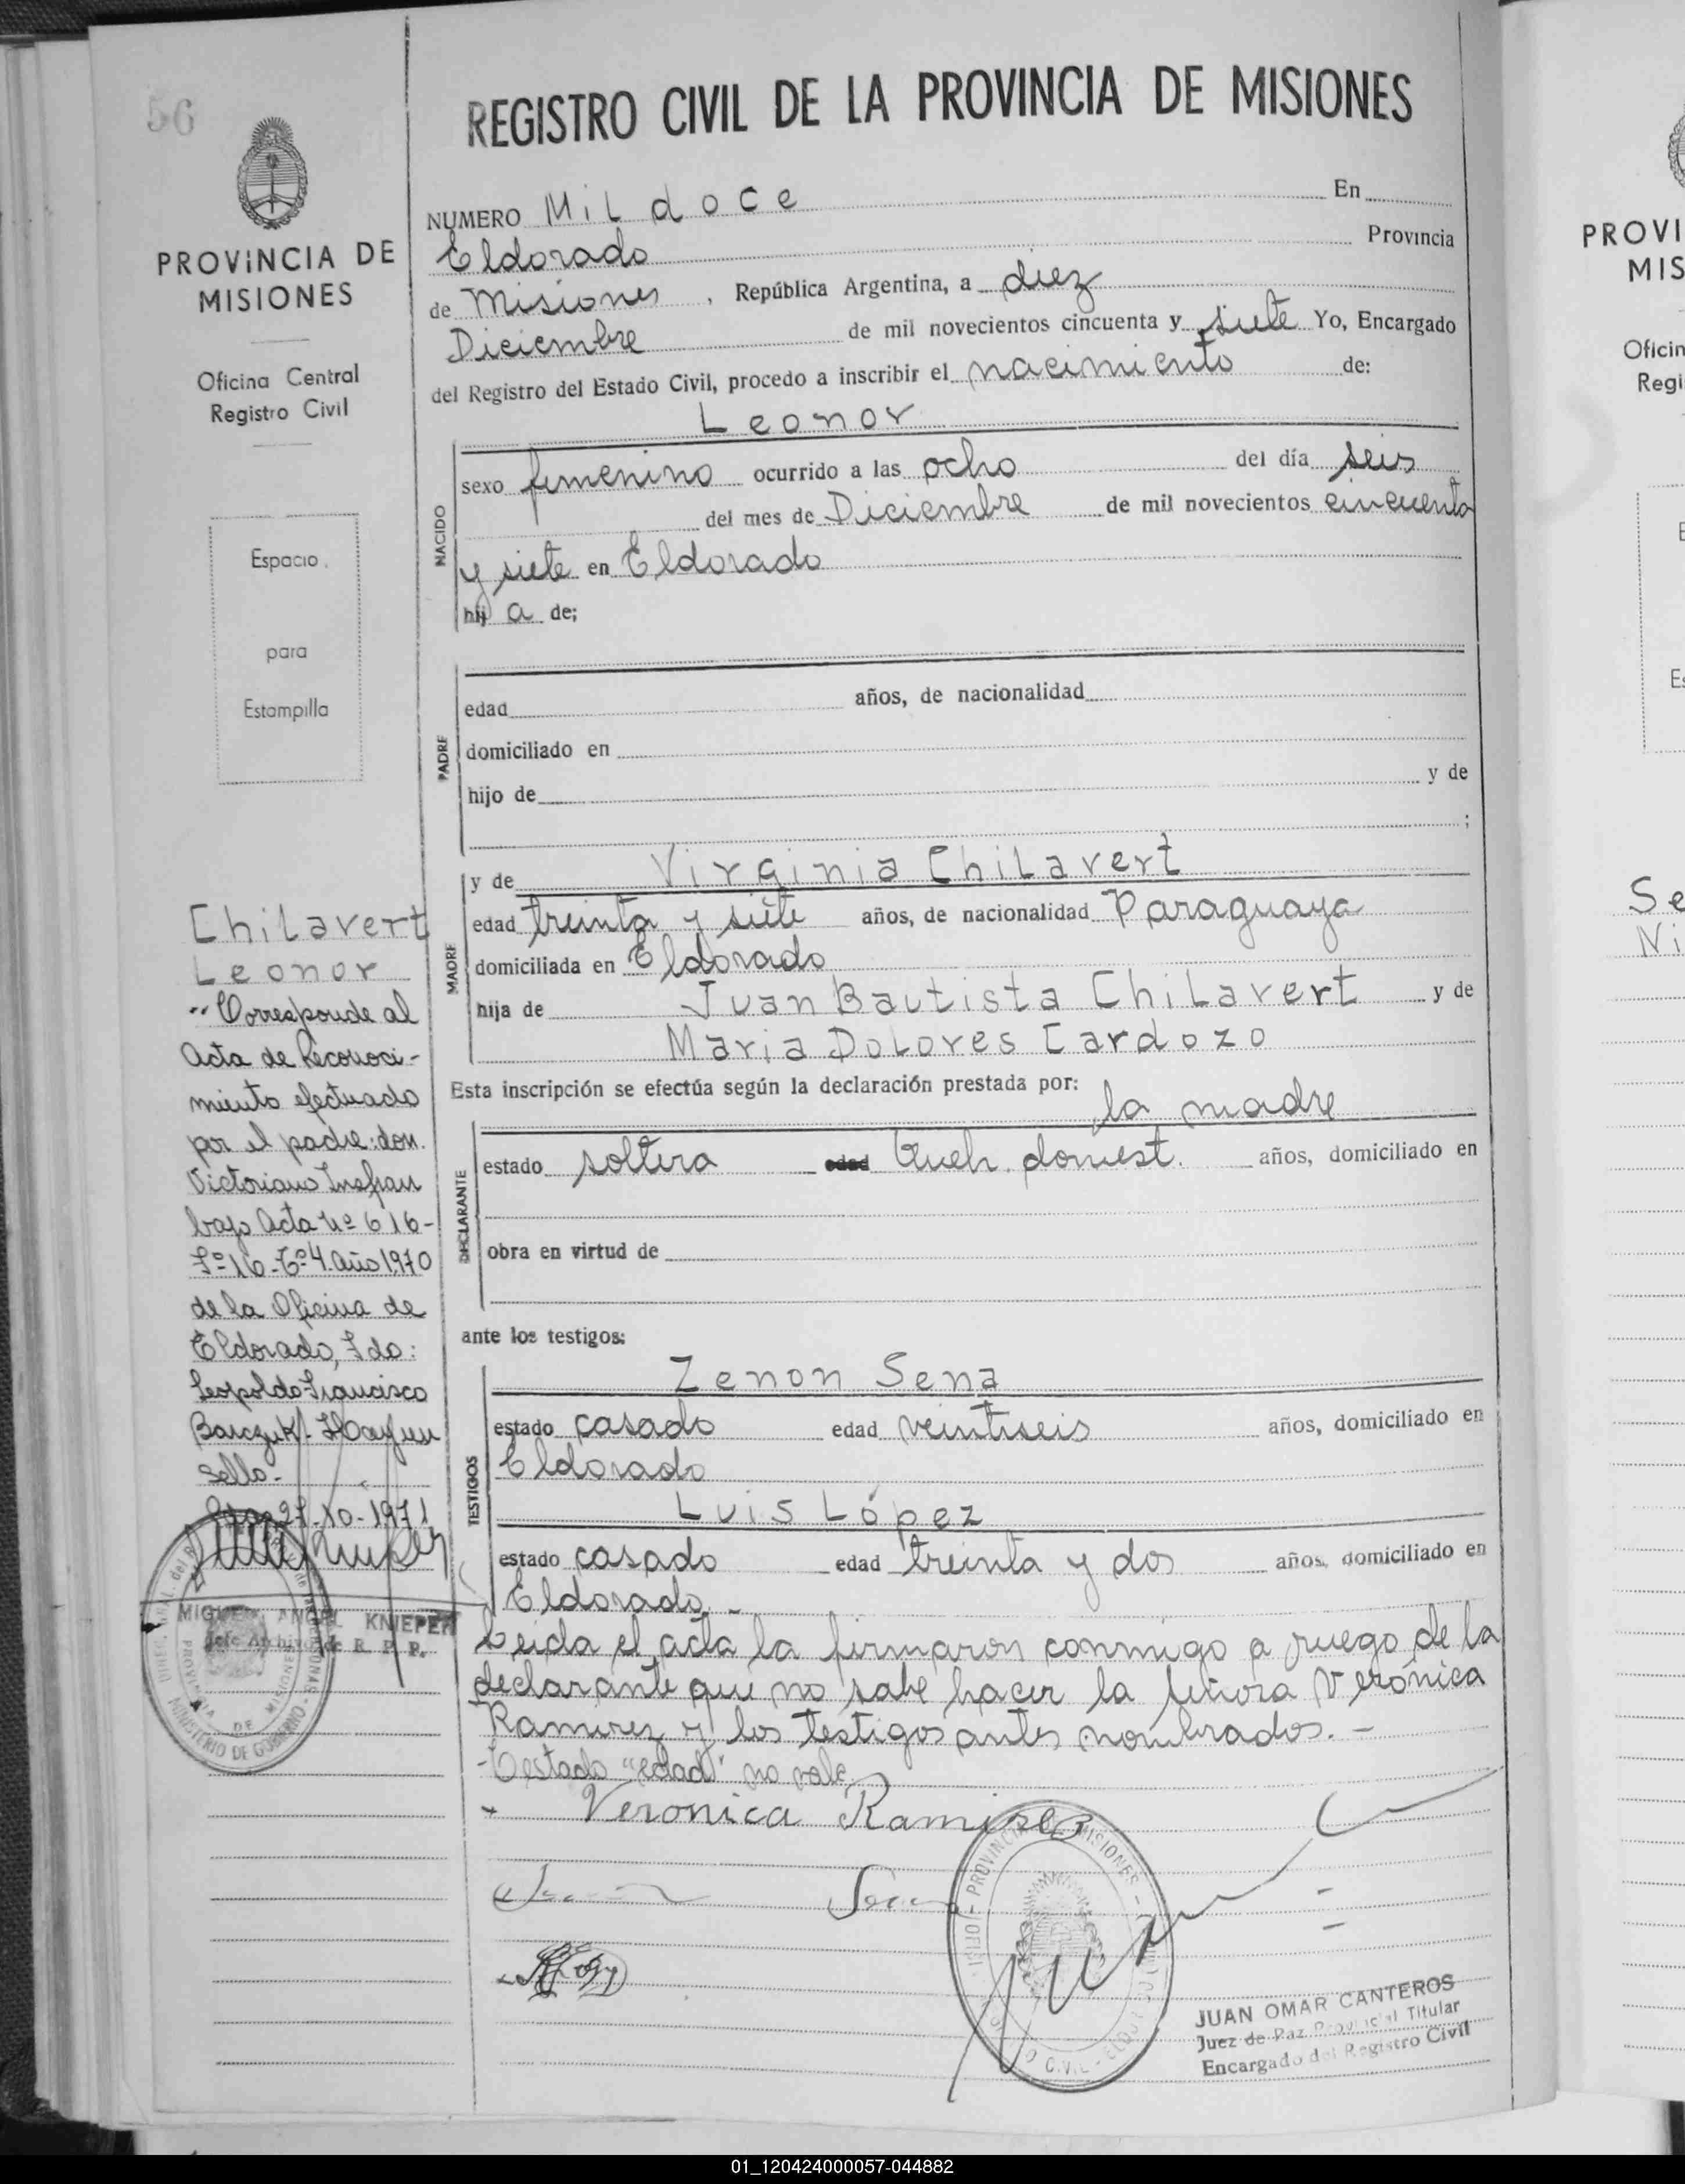 56
REGISTRO CIVIL DE LA PROVINCIA DE MISIONES
PROVINCIA DE
MISIONES
Oficina Central
Registro Civil
Espacio
para
Estampilla
NUMERO Mil doce En
Eldorado Provincia
de Misiones, República Argentina, a diez
Diciembre de mil novecientos cincuenta y siete Yo, Encargado
del Registro del Estado Civil, procedo a inscribir el nacimiento de:
Leonor
NACIDO
sexo femenino ocurrido a las ocho del día seis
del mes de Diciembre de mil novecientos cincuenta
y siete en Eldorado
hij a de;
PADRE
edad años, de nacionalidad
domiciliado en
hijo de y de
;
y de Virginia Chilavert
MADRE
edad treinta y siete años, de nacionalidad Paraguaya
domiciliada en Eldorado
hija de Juan Bautista Chilavert y de
Maria Dolores Cardozo
Esta inscripción se efectúa según la declaración prestada por:
la madre
DECLARANTE
estado soltera edad Queh. domest. años, domiciliado en
obra en virtud de
ante los testigos:
TESTIGOS
Zenon Sena
estado casado edad veintiseis años, domiciliado en
Eldorado
Luis López
estado casado edad treinta y dos años, domiciliado en
Eldorado.-
Leida el acta la firmaron conmigo a ruego de la
declarante que no sabe hacer la señora Verónica
Ramirez y los testigos antes nombrados.-
-Testado "edad" no vale.
Veronica Ramirez
Sena
JUAN OMAR CANTEROS
Juez de Paz Provincial Titular
Encargado del Registro Civil
Chilavert
Leonor
"Corresponde al
Acta de Reconoci-
miento efectuado
por el padre: don.
Victoriano
bajo Acta Nº 616-
Fº=16-Tº=4. Año 1970
de la Oficina de
Eldorado, Fdo:
Leopoldo Francisco
Sello-
27-10-1971
MIGUEL ANGEL KNIEPER
Jefe Archivo de R. P. P.
PROVINCIA DE MISIONES
MINISTERIO DE GOBIERNO
PROVINCIA DE MISIONES
PROVI
MIS
Oficin
Regi
E
Es
Se
Ni
01_120424000057-044882